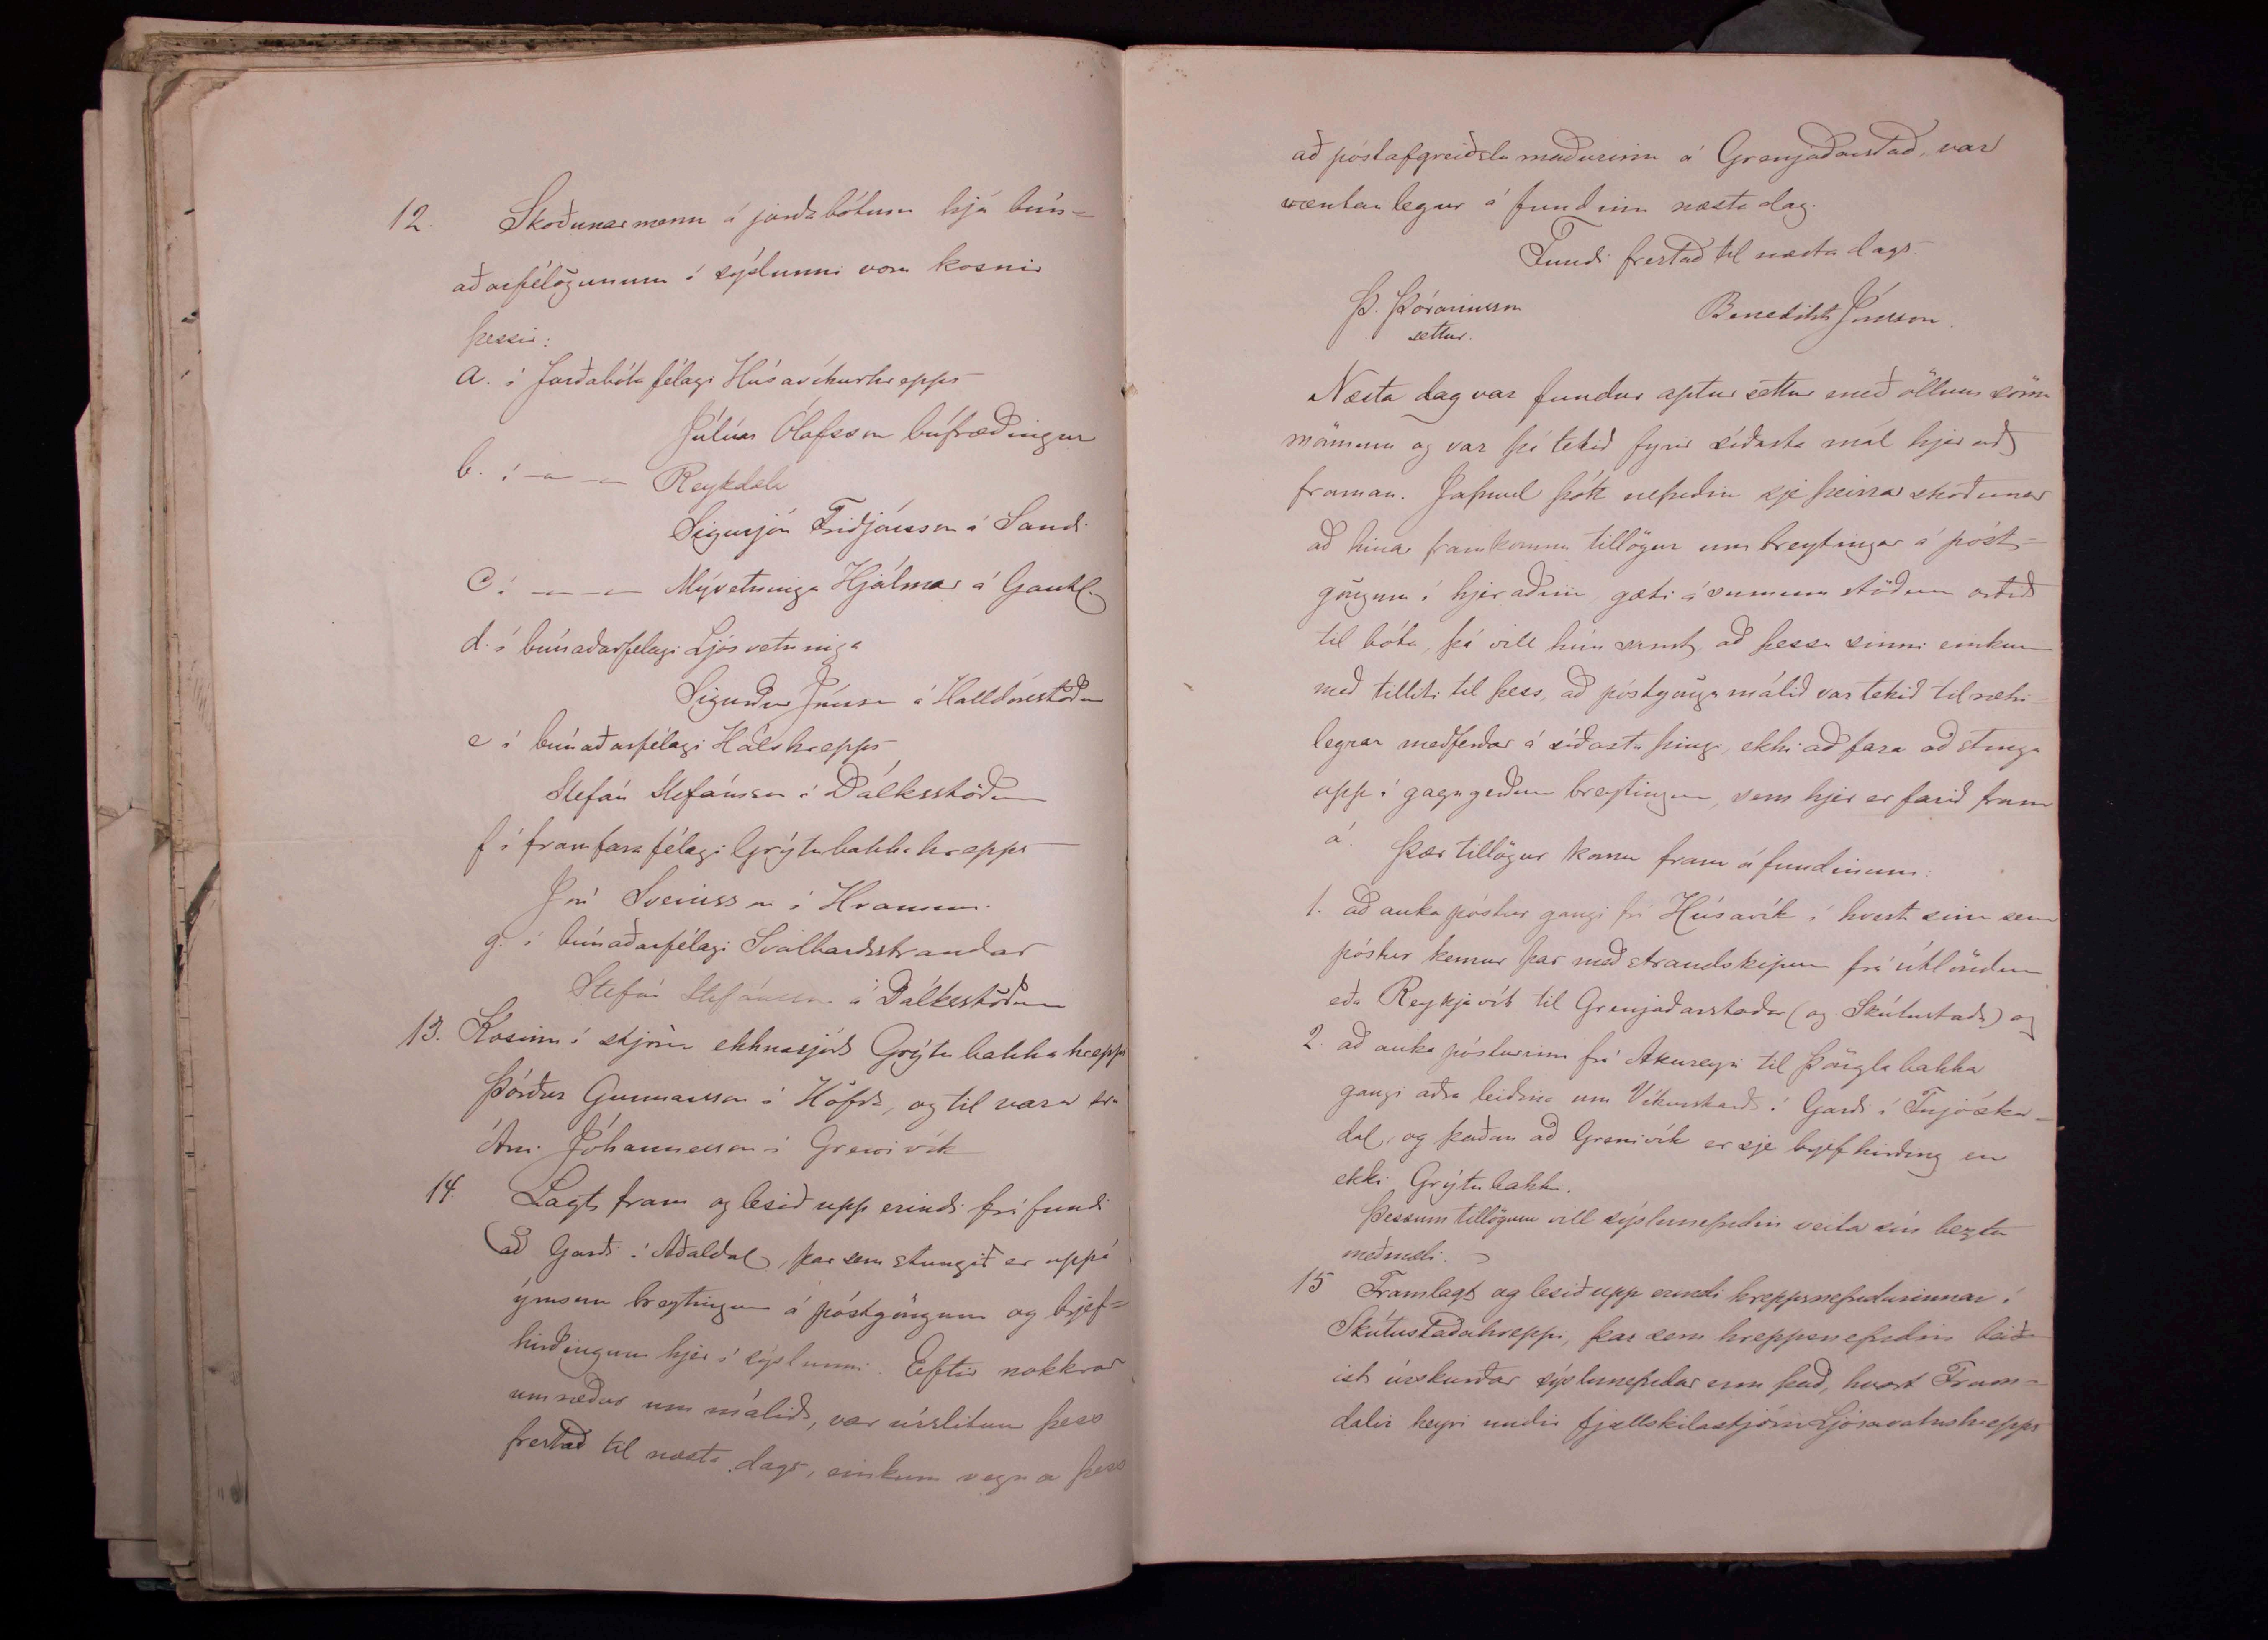 12. Skoðunarmenn á jarðabótum hjá bún=
aðarfélögunum í sýslunni voru kosnir
þessir:
a. í Jarðabóta félagi Húsavíkurhrepps
Júlíus Ólafsson búfræðingur
b. í — „ — „ — Reykdæla
Sigurjón Friðjónsson á Sandi
c. í — „ — „ — Mývetninga Hjálmar á Gautl.
d. í búnaðarfélagi Ljósvetninga
Sigurður Jónsson á Halldórsstöðum
e í búnaðarfélagi Hálshrepps
Stefán Stefánsson í Dálksstöðum
f í framfarafélagi Grýtubakkahrepps
Jón Sveinsson í Hvammi.
g. í búnaðarfélagi Svalbarðsstrandar
Stefán Stefánsson á Dálksstöðum
13. Kosinn í stjórn ekknasjóðs Grýtubakkahrepps
Þórður Gunnarsson í Höfða, og til vara sra
Árni Jóhannesson í Grenivík
14. Lagt fram og lesið upp erindi frá fundi
að Garði í Aðaldal, þar sem stungið er uppá
ýmsum breytingum á póstgöngum og brjef=
hirðingum hjer í sýslunni. Eftir nokkrar
umræður um málið, var úrslitum þess
frestað til næsta dags, einkum vegna þess
að póstafgreiðslumaðurinn á Grenjaðarstað, var
væntanlegur á fundinn næsta dag.
Fundi frestað til næsta dags.
Þ. Þórarinsson Benedikt Jónsson.
settur.
Næsta dag var fundur aptur settur með öllum söm
mönnum og var þá tekið fyrir síðasta mál hjer að
framan. Jafnvel þótt nefndin sje þeirrar skoðunar
að hinar framkomnu tillögur um breytingar á póst=
göngum í hjeraðinu gæti á sumum stöðum orðið
til bóta, þá vill hún samt að þessu sinni einkum
með tilliti til þess, að póstgöngumálið var tekið til ræki=
legrar meðferðar á síðasta þingi, ekki að fara að stinga
upp á gagngerðum breytingum, sem hjer er farið fram
á. Þær tillögur komu fram á fundinum:
1. að aukapóstur gangi frá Húsavík í hvert sinn sem
póstur kemur þar með strandskipum frá útlöndum
eða Reykjavík til Grenjaðarstaðar (og Skútustaða) og
2. að aukapósturinn frá Akureyri til Þönglabakka
gangi aðra leiðina um Víkurskarð í Garð í Fnjóska=
dal, og þaðan að Grenivík er sje brjefhirðing en
ekki Grýtubakki.
Þessum tillögum vill sýslunefndin veita sín beztu
meðmæli.
15 Framlagt og lesið upp erindi hreppsnefndarinnar í
Skútustaðahreppi, þar sem hreppsnefndin beið=
ist úrskurðar sýslunefndar um það, hvort Fram=
dalir heyri undir fjallskilastjórn Ljósavatnshrepps